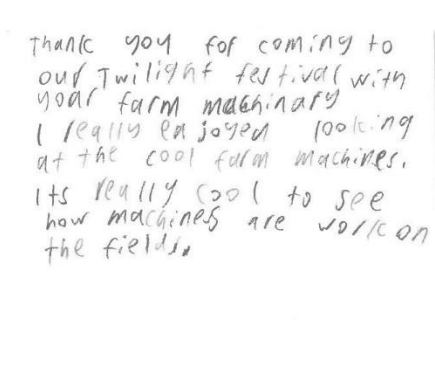 Thank you for coming to
our Twilight festival with
your farm machinary
I really enjoyed looking
at the cool farm machines.
Its really cool to see
how machines are work on
the fields.